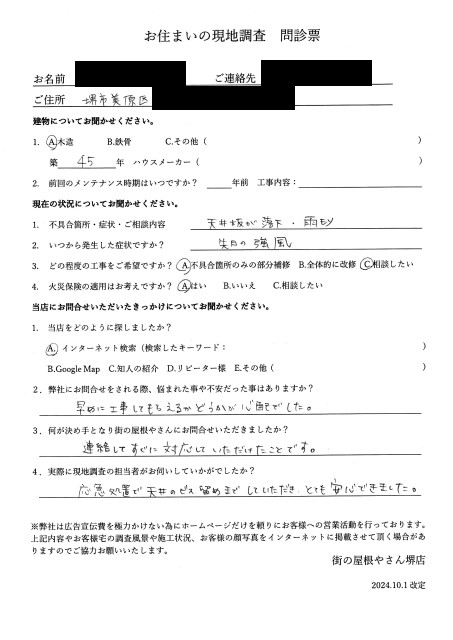 お住まいの現地調査　問診票
お名前　ご連絡先
ご住所　堺市美原区
建物についてお聞かせください。
1. A.木造　B.鉄骨　C.その他（　）
築　45　年　ハウスメーカー（　）
2. 前回のメンテナンス時期はいつですか？　年前　工事内容：
現在の状況についてお聞かせください。
1. 不具合箇所・症状・ご相談内容　天井板が落下・雨もり
2. いつから発生した症状ですか？　先日の強風
3. どの程度の工事をご希望ですか？ A.不具合箇所のみの部分補修 B.全体的に改修 C.相談したい
4. 火災保険の適用はお考えですか？ A.はい　B.いいえ　C.相談したい
当店にお問合せいただいたきっかけについてお聞かせください。
1. 当店をどのように探しましたか？
A. インターネット検索（検索したキーワード：　）
B.Google Map　C.知人の紹介　D.リピーター様　E.その他（　）
2. 弊社にお問合せをされる際、悩まれた事や不安だった事はありますか？
早めに工事してもらえるかどうかが心配でした。
3. 何が決め手となり街の屋根やさんにお問合せいただきましたか？
連絡してすぐに対応していただけたことです。
4. 実際に現地調査の担当者がお伺いしていかがでしたか？
応急処置で天井のビス留めまでしていただき、とても安心できました。
※弊社は広告宣伝費を極力かけない為にホームページだけを頼りにお客様への営業活動を行っております。
上記内容やお客様宅の調査風景や施工状況、お客様の顔写真をインターネットに掲載させて頂く場合があ
りますのでご協力お願いいたします。
街の屋根やさん堺店
2024.10.1 改定